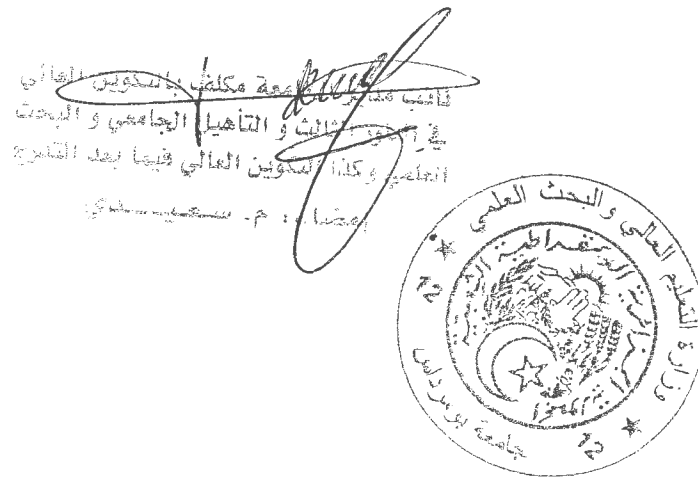 نائب مدير الجامعة مكلف بالتكوين العالي
في الطور الثالث و التأهيل الجامعي و البحث
العلمي وكذا التكوين العالي فيما بعد التدرج
إمضاء: م. سعيدي
وزارة التعليم العالي والبحث العلمي
جامعة بومرداس
الجمهورية الجزائرية الديمقراطية الشعبية
12
12